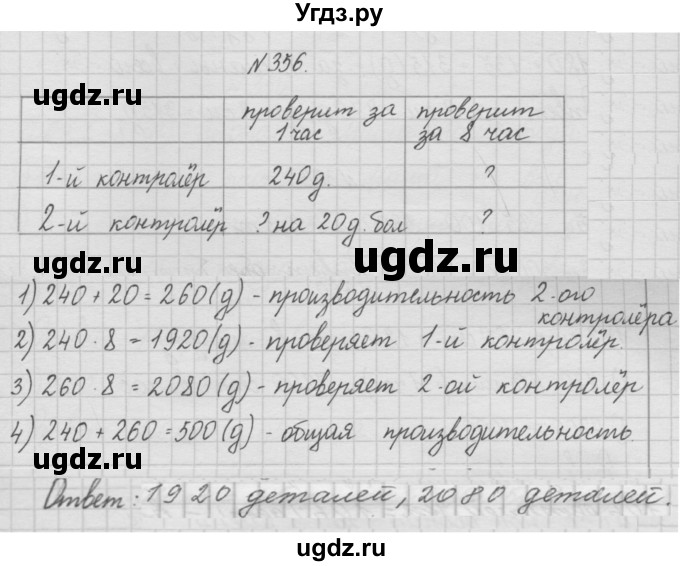 Угдз.ру
№356.
проверит за 1 час
проверит за 8 час
1-й контролёр 240д. ?
2-й контролёр ? на 20д. бол ?
1) 240 + 20 = 260(д) - производительность 2-ого контролёра
2) 240 · 8 = 1920(д) - проверяет 1-й контролёр.
3) 260 · 8 = 2080(д) - проверяет 2-ой контролёр
4) 240 + 260 = 500(д) - общая производительность.
Ответ: 1920 деталей, 2080 деталей.
ugdz.ru
ugdz.ru
ugdz.ru
ugdz.ru
ugdz.ru
ugdz.ru
ugdz.ru
ugdz.ru